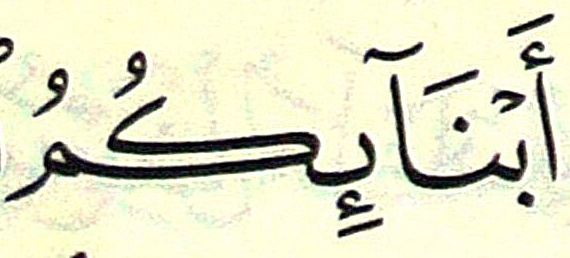 أَبْنَآئِكُمُ